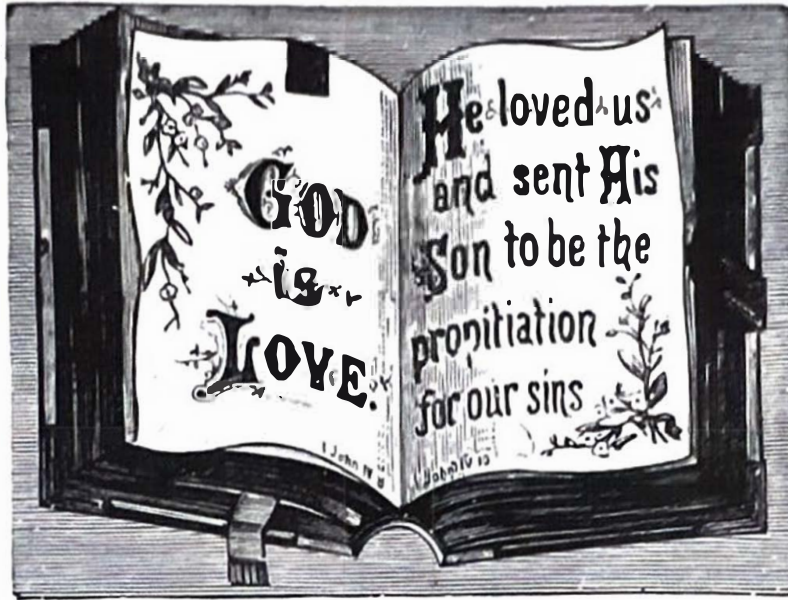 GOD
is
LOVE.
1 John IV 8
He loved us
and sent His
Son to be the
propitiation
for our sins
1 John IV 10